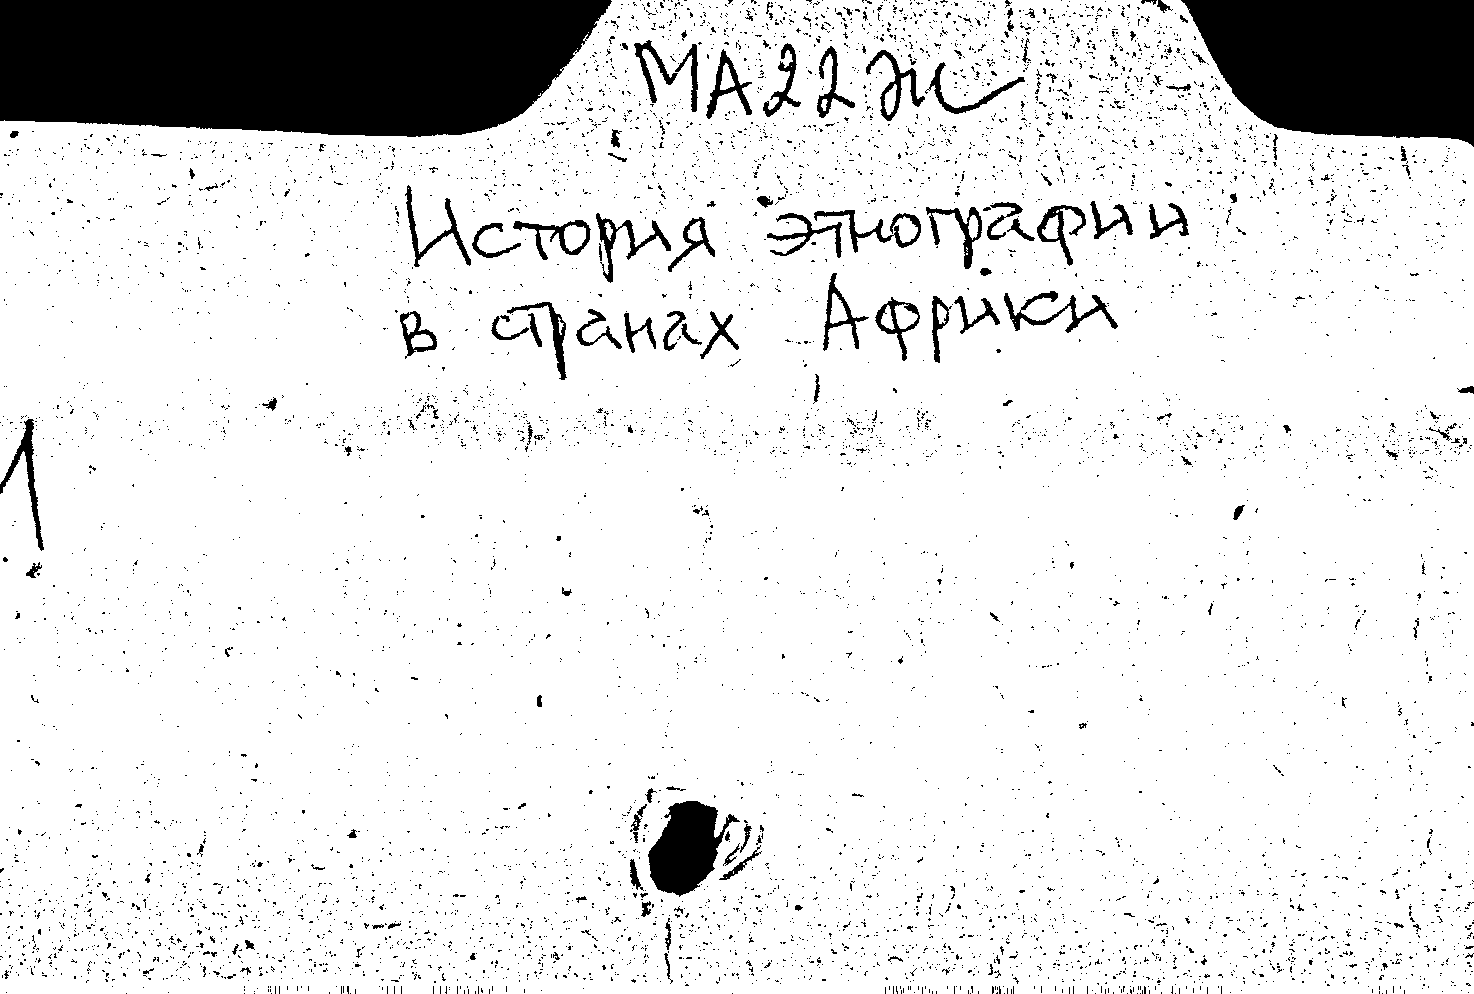 МА22Ж
История этнографии
в странах Африки
1